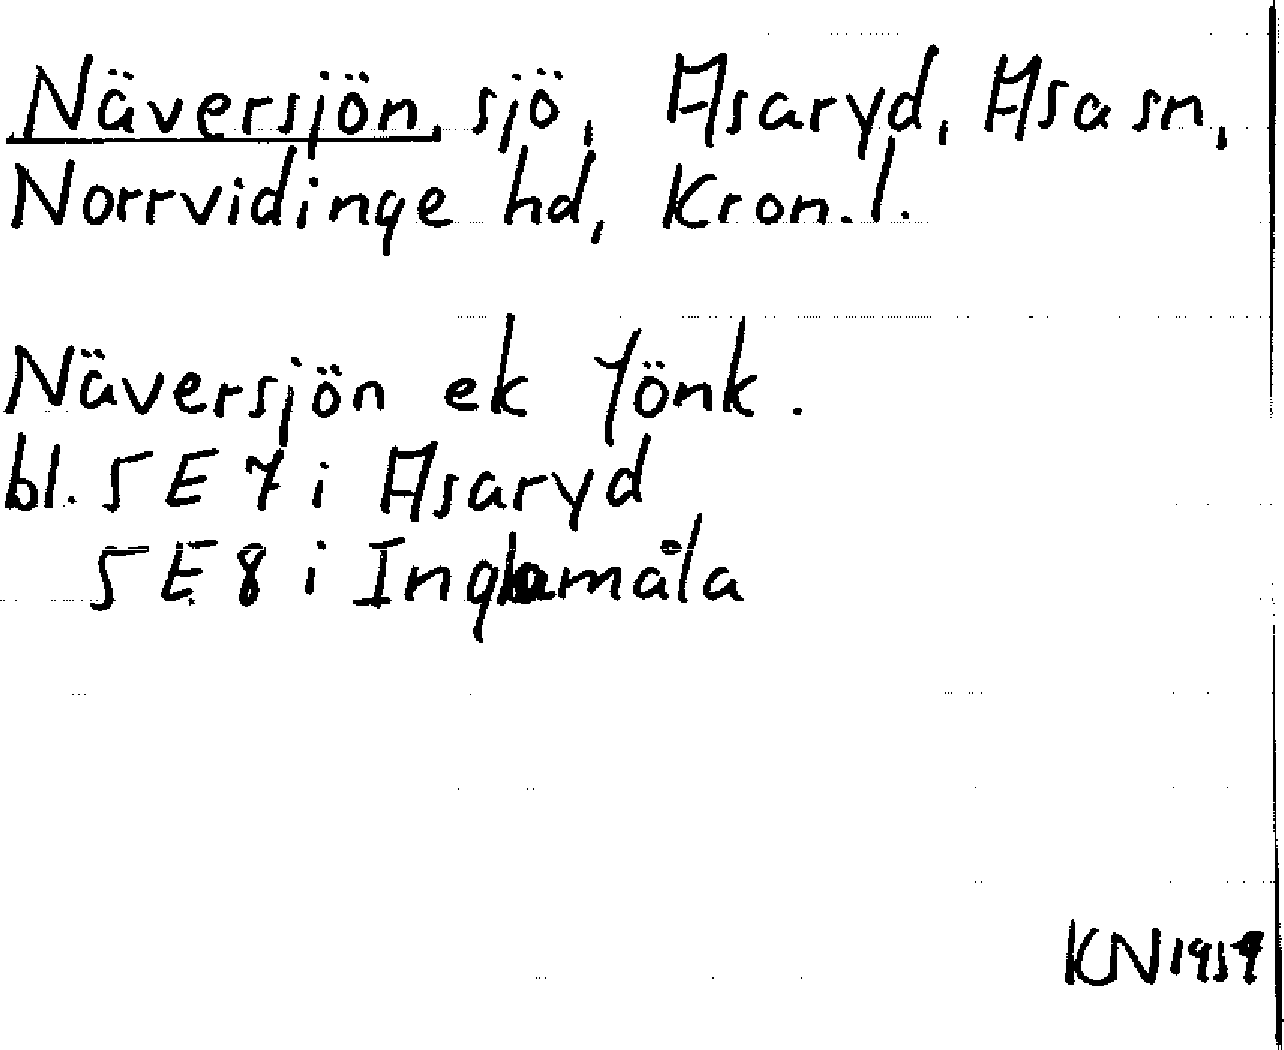 Näversjön, sjö, Asaryd, Asa sn,
Norrvidinge hd, Kron. l.
Näversjön ek Jönk.
bl. 5E7 i Asaryd
5E8 i
KN